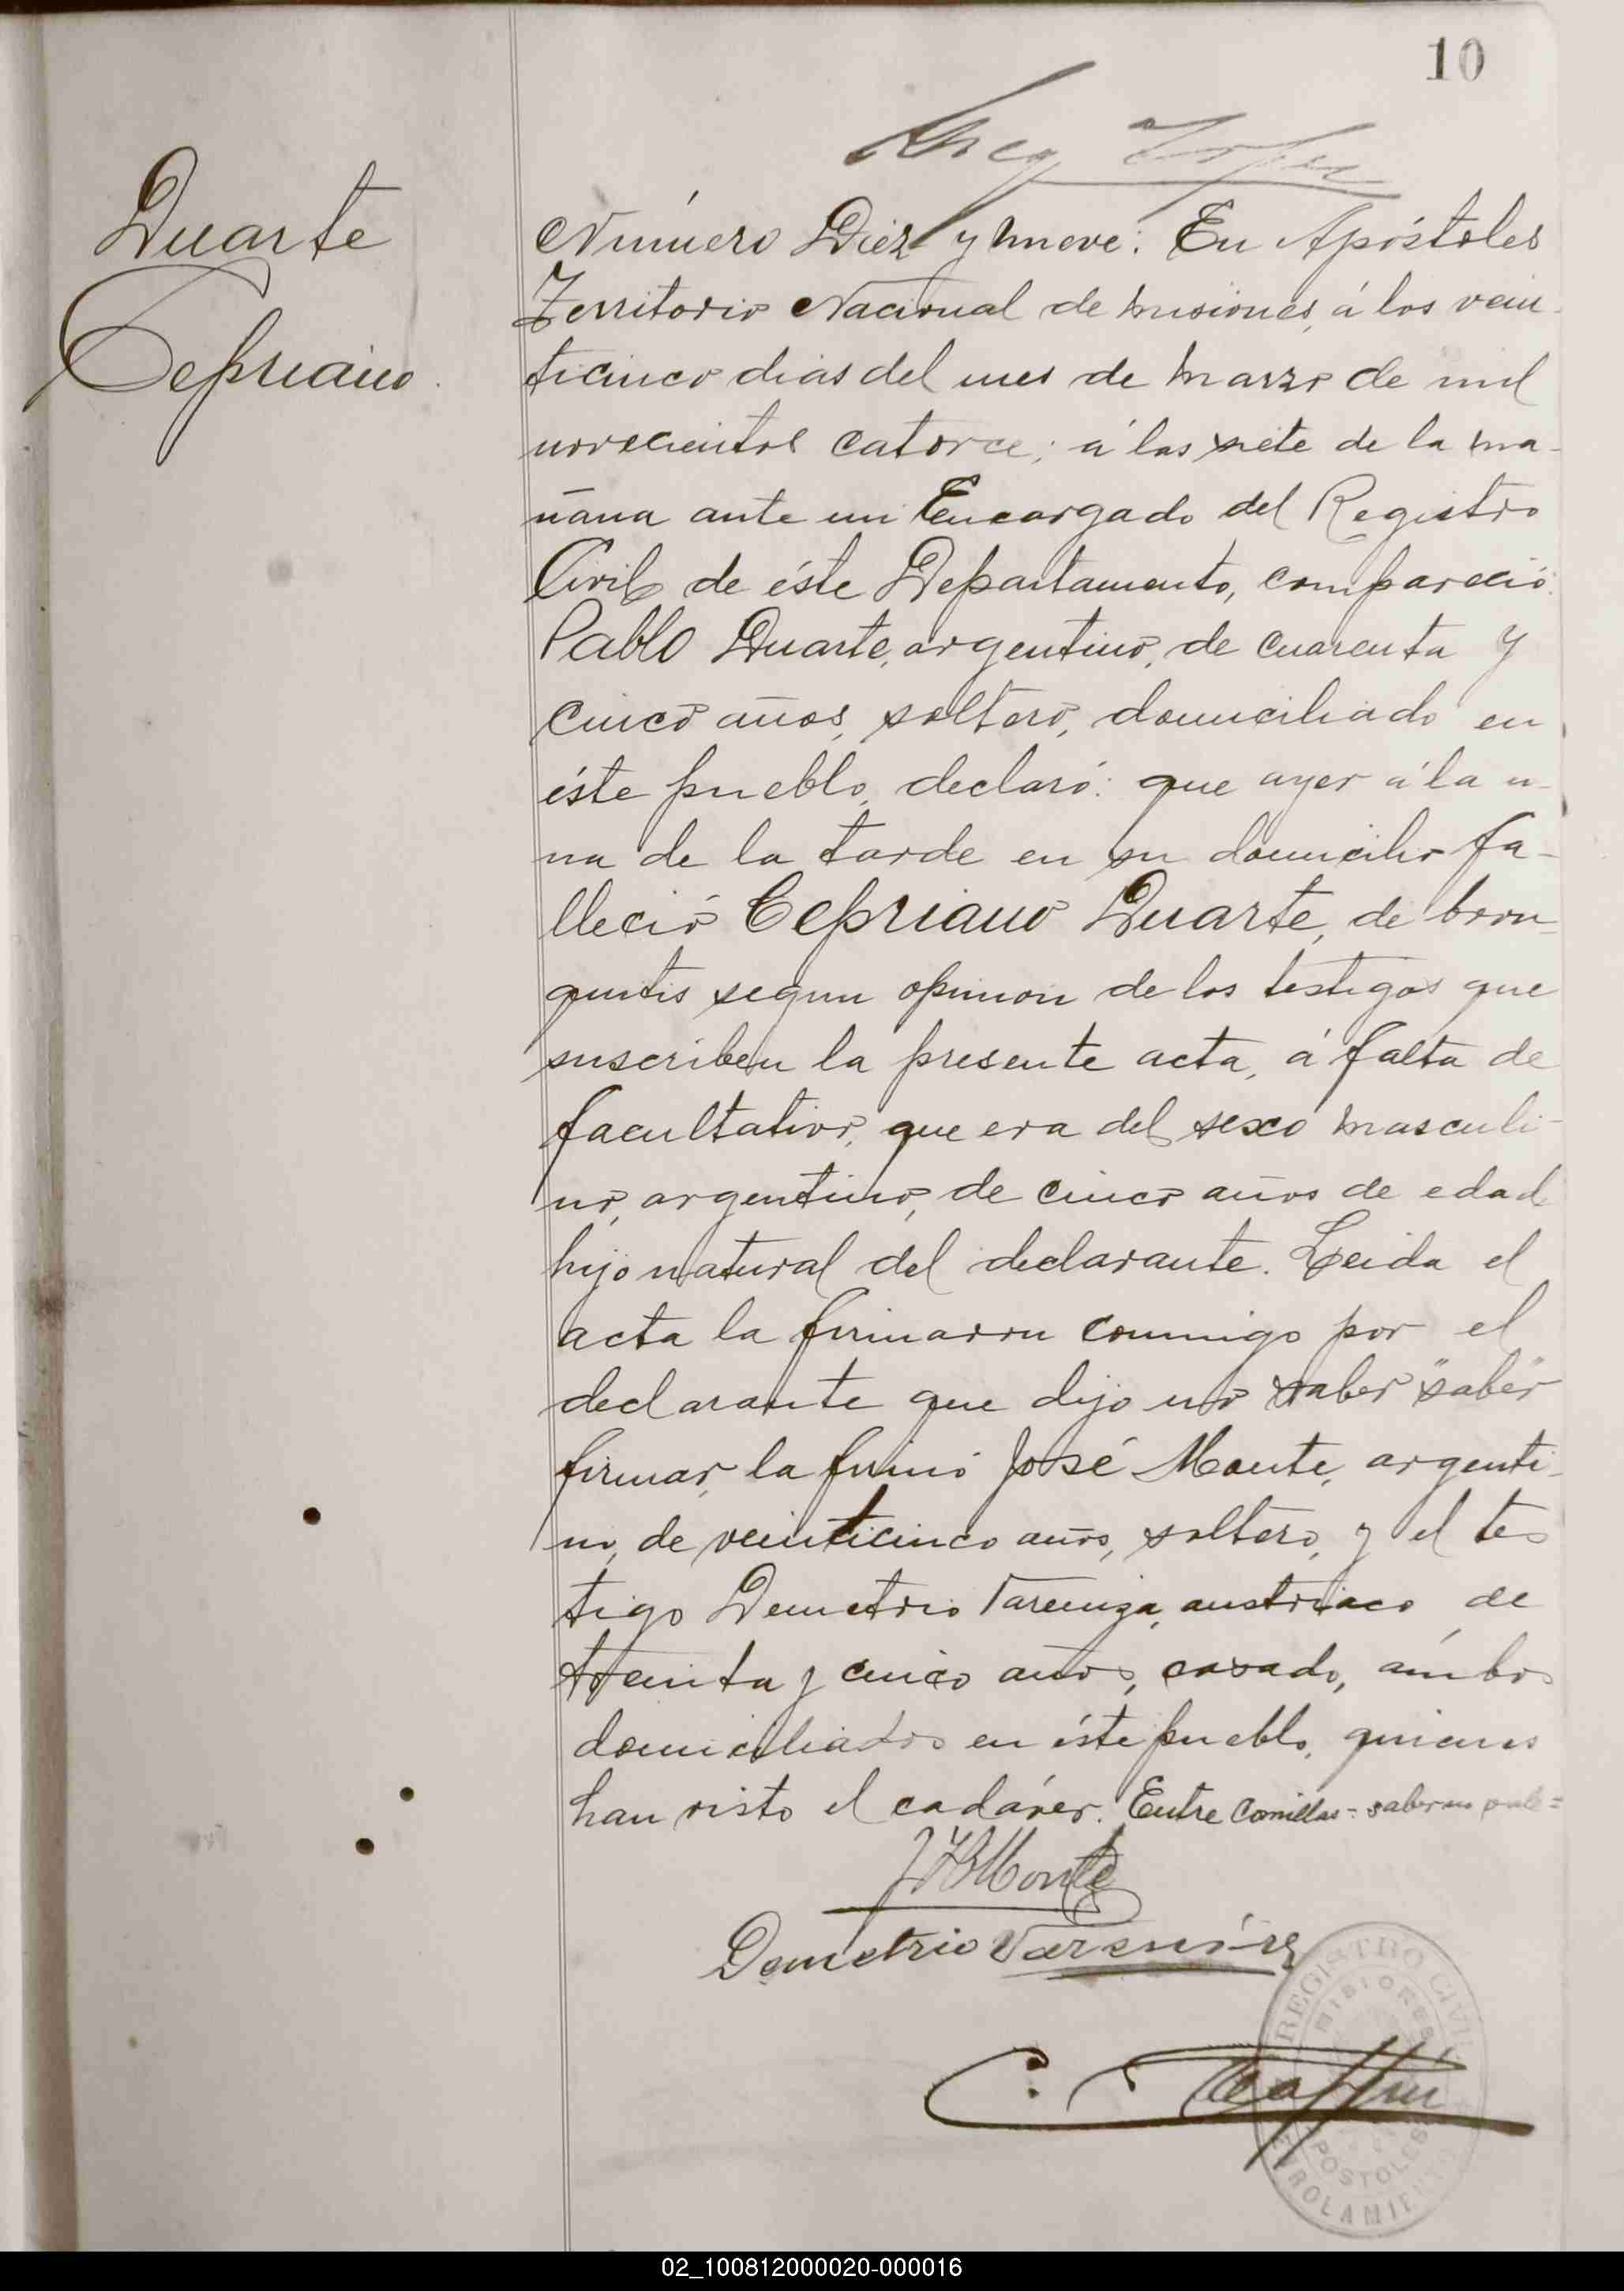 10
Duarte
Cepriano.
Número Diez y nueve: En Apóstoles
Territorio Nacional de Misiones, á los vein-
ticinco dias del mes de Marzo de mil
novecientos catorce; á las siete de la ma-
ñana ante mi Encargado del Registro
Civil de éste Departamento, compareció:
Pablo Duarte, argentino, de cuarenta y
cinco años, soltero, domiciliado en
éste pueblo, declaró: que ayer á la u-
na de la tarde en su domicilio fa-
lleció Cepriano Duarte, de bron-
quitis segun opinion de los testigos que
suscriben la presente acta, á falta de
facultativo, que era del sexo masculi-
no, argentino, de cinco años de edad
hijo natural del declarante. Leida el
acta la firmaron conmigo por el
declarante que dijo no saber "saber"
firmar, la firmó José Monte, argenti-
no, de veinticinco años, soltero, y el tes
tigo Demetrio, austriaco, de
treinta y cinco años, casado, ámbos
domiciliados en éste pueblo, quienes
han visto el cadáver. Entre comillas = saber no vale =
Monte
Demetrio
C.
REGISTRO CIVIL
MISIONES
APOSTOLES
ENROLAMIENTO
02_100812000020-000016